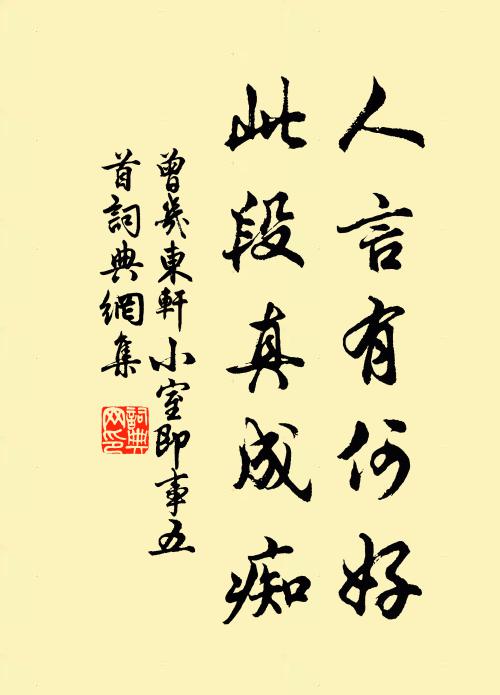 人言有何好
此段真成痴
曾幾東軒小室即事五
首詞典網集
詞典网印